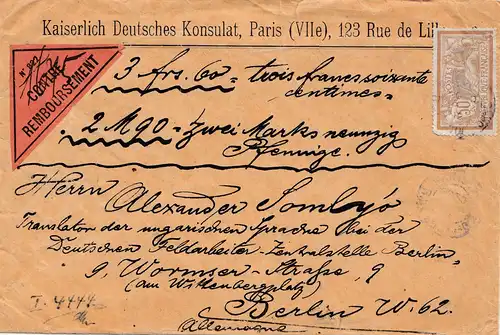 Kaiserlich Deutsches Konsulat, Paris (VIIe), 123 Rue de Lille
CONTRE
REMBOURSEMENT
3 frs. 60 = trois francs soixante
centimes =
2 M 90 = Zwei Marks neunzig
Pfennige.
Herrn
Alexander Somlyó
Translator der ungarischen Sprache bei der
Deutschen Feldarbeiter-Zentralstelle Berlin,
9, Wormser-Straße, 9
(am Wittenbergplatz)
Berlin W. 62.
Allemagne
I. 4444